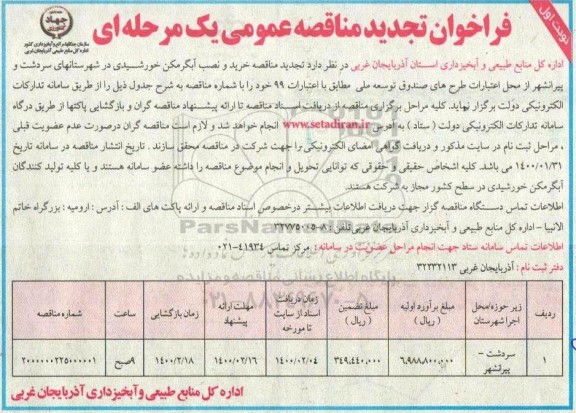 نوبت اول
فراخوان تجدید مناقصه عمومی یک مرحله ای
سازمان جنگلها، مراتع و آبخیزداری کشور
اداره کل منابع طبیعی آذربایجان غربی
اداره کل منابع طبیعی و آبخیزداری اسـتان آذربایجان غربی در نظر دارد تجدید مناقصه خرید و نصب آبگرمکن خورشـیدی در شهرستانهای سردشت و
پیرانشهر از محل اعتبارات طرح های صندوق توسعه ملی مطابق با اعتبارات ۹۹ خود را با شماره مناقصه به شرح جدول ذیل را از طریق سامانه تدارکات
الکترونیکی دولت برگزار نماید. کلیه مراحل برگزاری مناقصه از دریافت اسـناد مناقصه تا ارائه پیشـنهاد مناقصه گران و بازگشایی پاکتها از طریق درگاه
سامانه تدارکات الکترونیکی دولت ( ستاد ) به آدرس www.setadiran.ir انجام خواهد شد و لازم است مناقصه گران درصورت عدم عضویت قبلی
، مراحل ثبت نام در سایت مذکور و دریافت گواهی امضای الکترونیکی را جهت شرکت در مناقصه محقق سازند . تاریخ انتشار مناقصه در سامانه تاریخ
۱۴۰۰/۰۱/۳۱ می باشد. کلیه اشخاص حقیقی و حقوقی که توانایی تحویل و انجام موضوع مناقصه را داشته عضو سامانه هستند و یا کلیه تولید کنندگان
آبگرمکن خورشیدی در سطح کشور مجاز به شرکت هستند.
اطلاعات تماس دستگاه مناقصه گزار جهت دریافت اطلاعات بیشـتر درخصوص اسناد مناقصه و ارائه پاکت های الف : آدرس : ارومیه : بزرگراه خاتم
الانبیا - اداره کل منابع طبیعی و آبخیزداری آذربایجان غربی تلفن
اطلاعات تماس سامانه ستاد جهت انجام مراحل عضویت در سامانه: مرکز تماس ۴۱۹۳۴-۰۲۱
دفتر ثبت نام : آذربایجان غربی ۳۲۲۳۲۱۱۳
ردیف | زیر حوزه/محل اجرا شهرستان | مبلغ برآورد اولیه ( ریال ) | مبلغ تضمین ( ریال ) | زمان دریافت اسناد از سایت تا مورخه | مهلت ارائه پیشنهاد | زمان بازگشایی | ساعت | شماره مناقصه
۱ | سردشت - پیرانشهر | ۶,۹۸۸,۸۰۰,۰۰۰ | ۳۴۹,۴۴۰,۰۰۰ | ۱۴۰۰/۰۲/۰۴ | ۱۴۰۰/۰۲/۱۶ | ۱۴۰۰/۲/۱۸ | ۹صبح | ۲۰۰۰۰۰۰۲۲۵۰۰۰۰۰۱
اداره کل منابع طبیعی و آبخیزداری آذربایجان غربی